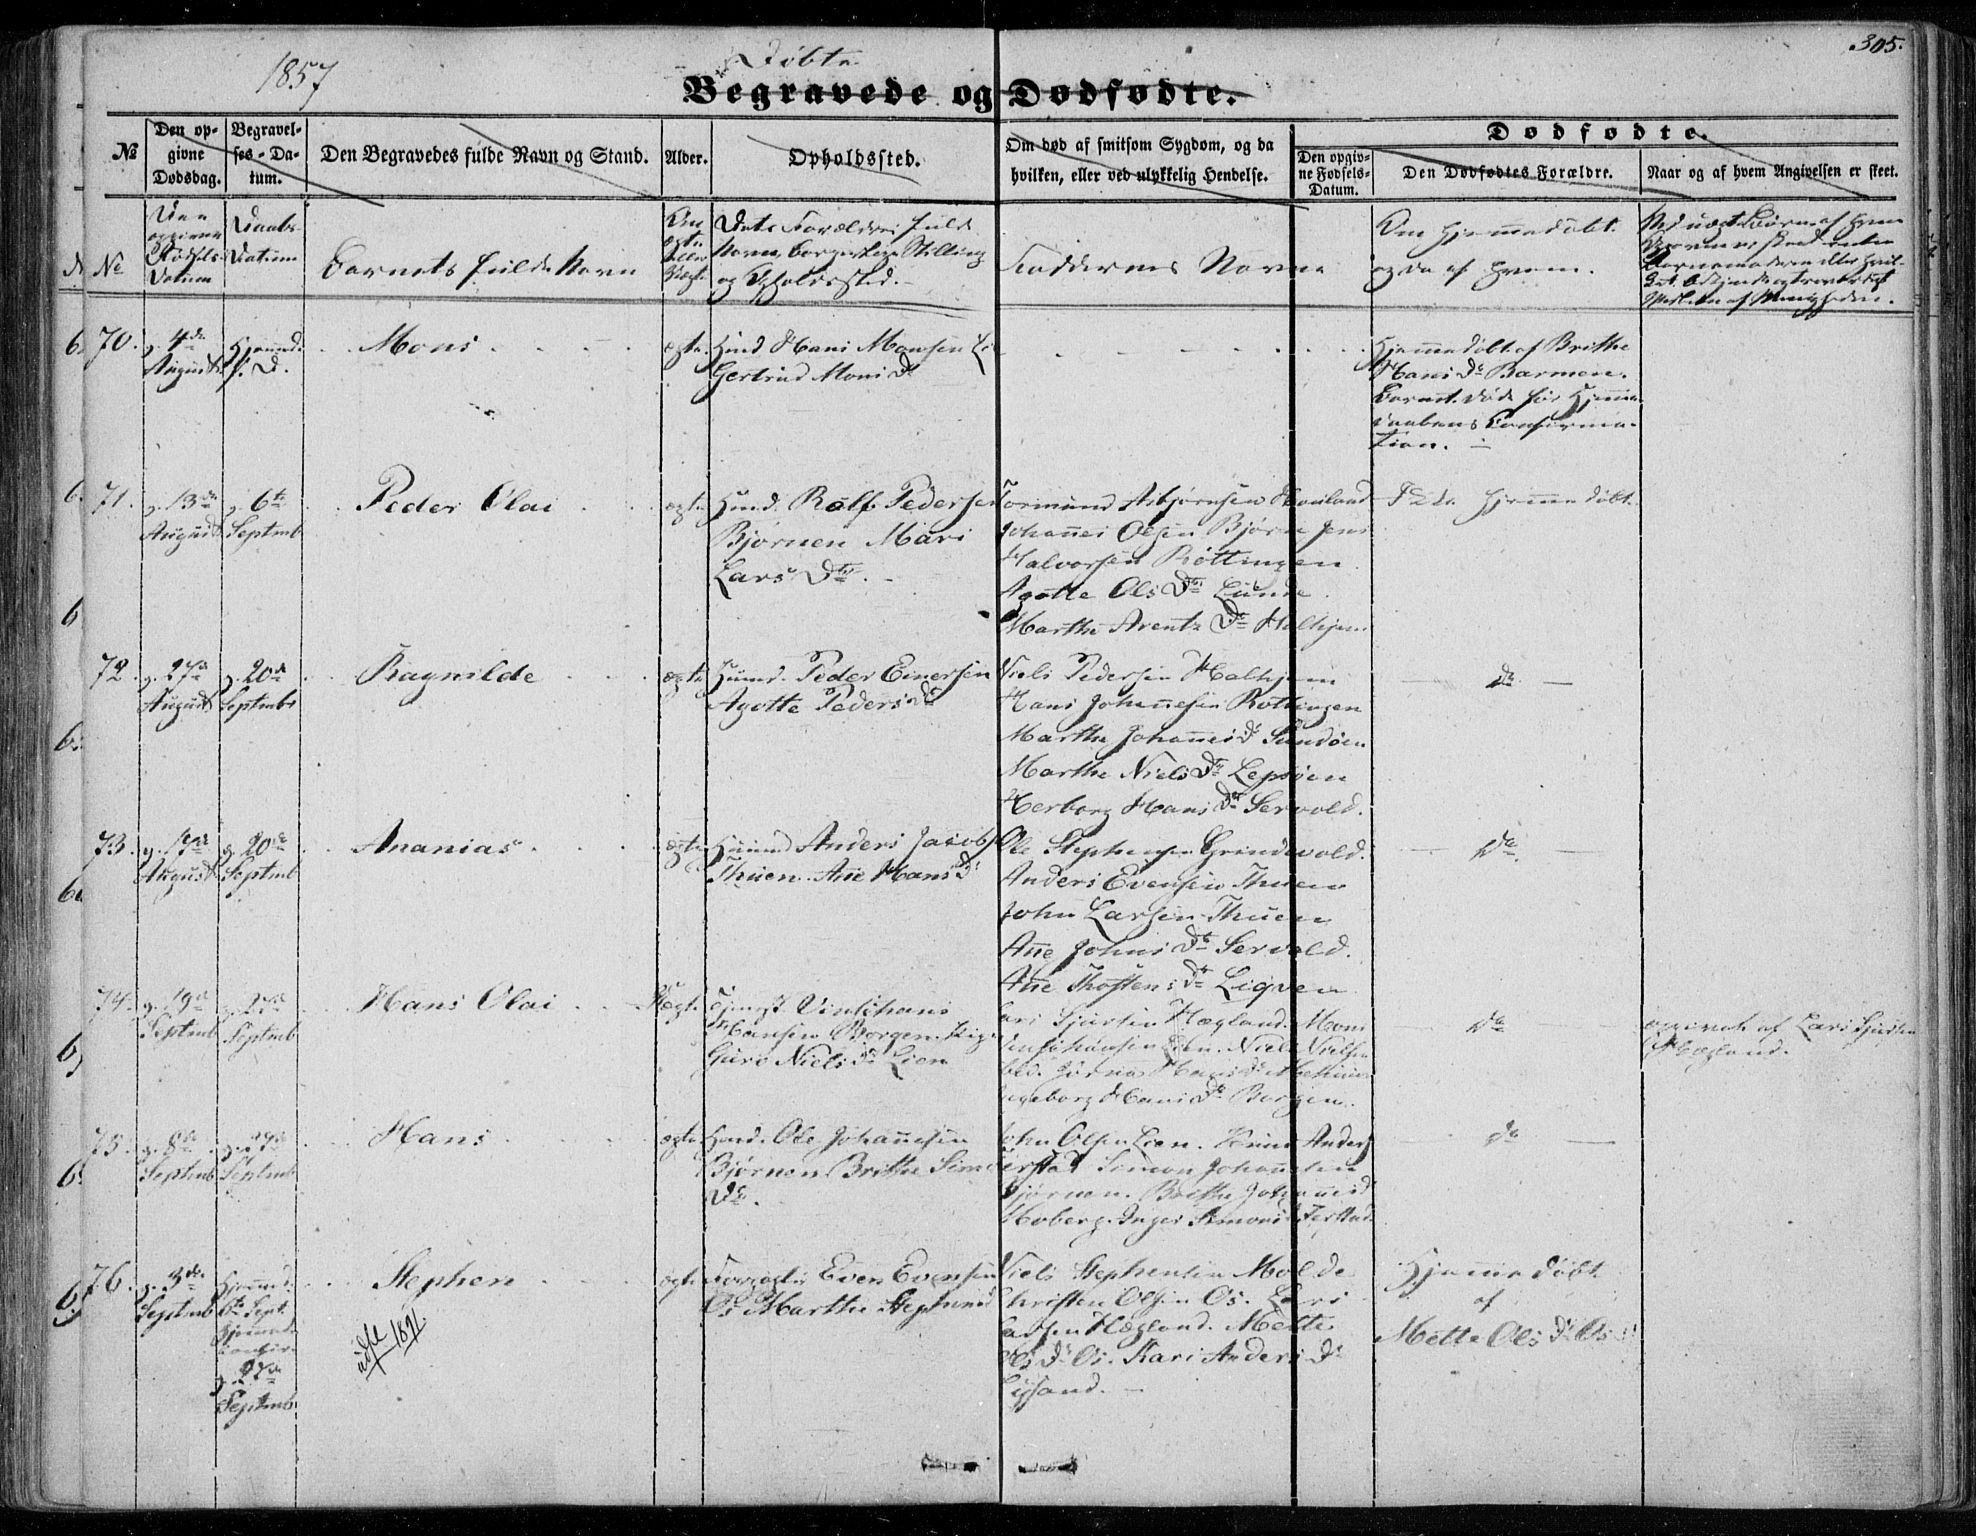 1857
Døbte
305.
Begravede og Dødfødte.
No
Den op-
givne
Dødsdag.
Begravel-
ses-Da-
tum.
Den Begravedes fulde Navn og Stand.
Alder.
Opholdssted.
Om død af smitsom Sygdom, og da
hvilken, eller ved ulykkelig Hendelse.
Dødfødte.
Den opgiv-
ne Fødsels-
Datum.
Den Dødfødtes Forældre.
Naar og af hvem Angivelsen er skeet.
No
Den
opgivne
Fødsels
Datum
Daabs
Datum
Barnets fulde Navn
Om
ægte
eller
uægte
Dets Forældres fulde
Navn, borgerlige Stilling
og Opholdssted.
Faddernes Navne
Om hjemmedøbt
og da af hvem.
70.
g. 4de
August
Hjemmed.
f. D.
Mons
ægte
Huusd Hans Monsen
Gertrud Monsdr
Hjemmedøbt af Brithe
Hansdr Barmen.
Barnet døde før Hjemme-
daabens Confirma-
tion.
71.
g. 13de
August
g. 6te
Septemb
Peder Olai
ægte
Huusd. Rolf Pedersen
Bjørnen Mari
Larsdtr.
Tormund Asbjørnsen Hauland
Johannes Olsen Bjørnen Jens
Halvorsen Røttingen
Agatte Olsdtr Lunde
Marthe Arentzdr Halhjem
Ikke hjemmedøbt
72.
g. 27de
August
g. 20de
Septembr
Ragnilde
ægte
Huusd. Peder Einersen
Agotte Pedersdr
Niels Pedersen Halhjem
Hans Johannesen Røttingen
Marthe Johannesdr Sundøen
Marthe Nielsdr Lepsøen
Herborg Hansdr Servold.
do
73.
g. 17de
August
g. 20de
Septemb
Ananias
ægte
Huusd Anders Jacobs
Thuen. Ane Hansdr
Ole Stephensen Grindevold.
Anders Evensen Thuen
John Larsen Thuen
Ane Johnsdr Servold.
Ane Thostensdr Liqven
do
74.
g. 19de
Septemb
g. 27de
Septemb
Hans Olai
Uægte
Hansen Borgen. Pige
Guro Nielsdr Lien
Lars Sjursen Hægland. Mons
Niels Nielsen
Ingeborg Hansdr Borgen.
do
opgivet af Lars Sjursen
Hægland.
75.
g. 8de
Septemb
g. 27de
Septemb
Hans
ægte
Huusd. Ole Johannesen
Bjørnen Brithe Simons
dr.
John Olsen Lien. Anders
Ferstad Simon Johannesen
Bjørnen. Brithe Johannesdr
Moberg. Inger Simonsdr Ferstad
do
76.
g. 3de
Septemb
Hjemmed.
6te Sept.
Hjemmed.
Confir.
g. 27de
Septemb
Stephen
udfl 1871.
ægte
Even Evensen
Os Marthe Stephensd
Niels Stephensen Molde
Christen Olsen Os. Lars
Larsen Hægland. Mette
Olsdr Os. Kari Andersdr
Lysand.
Hjemmedøbt
af
Mette Olsdr Os